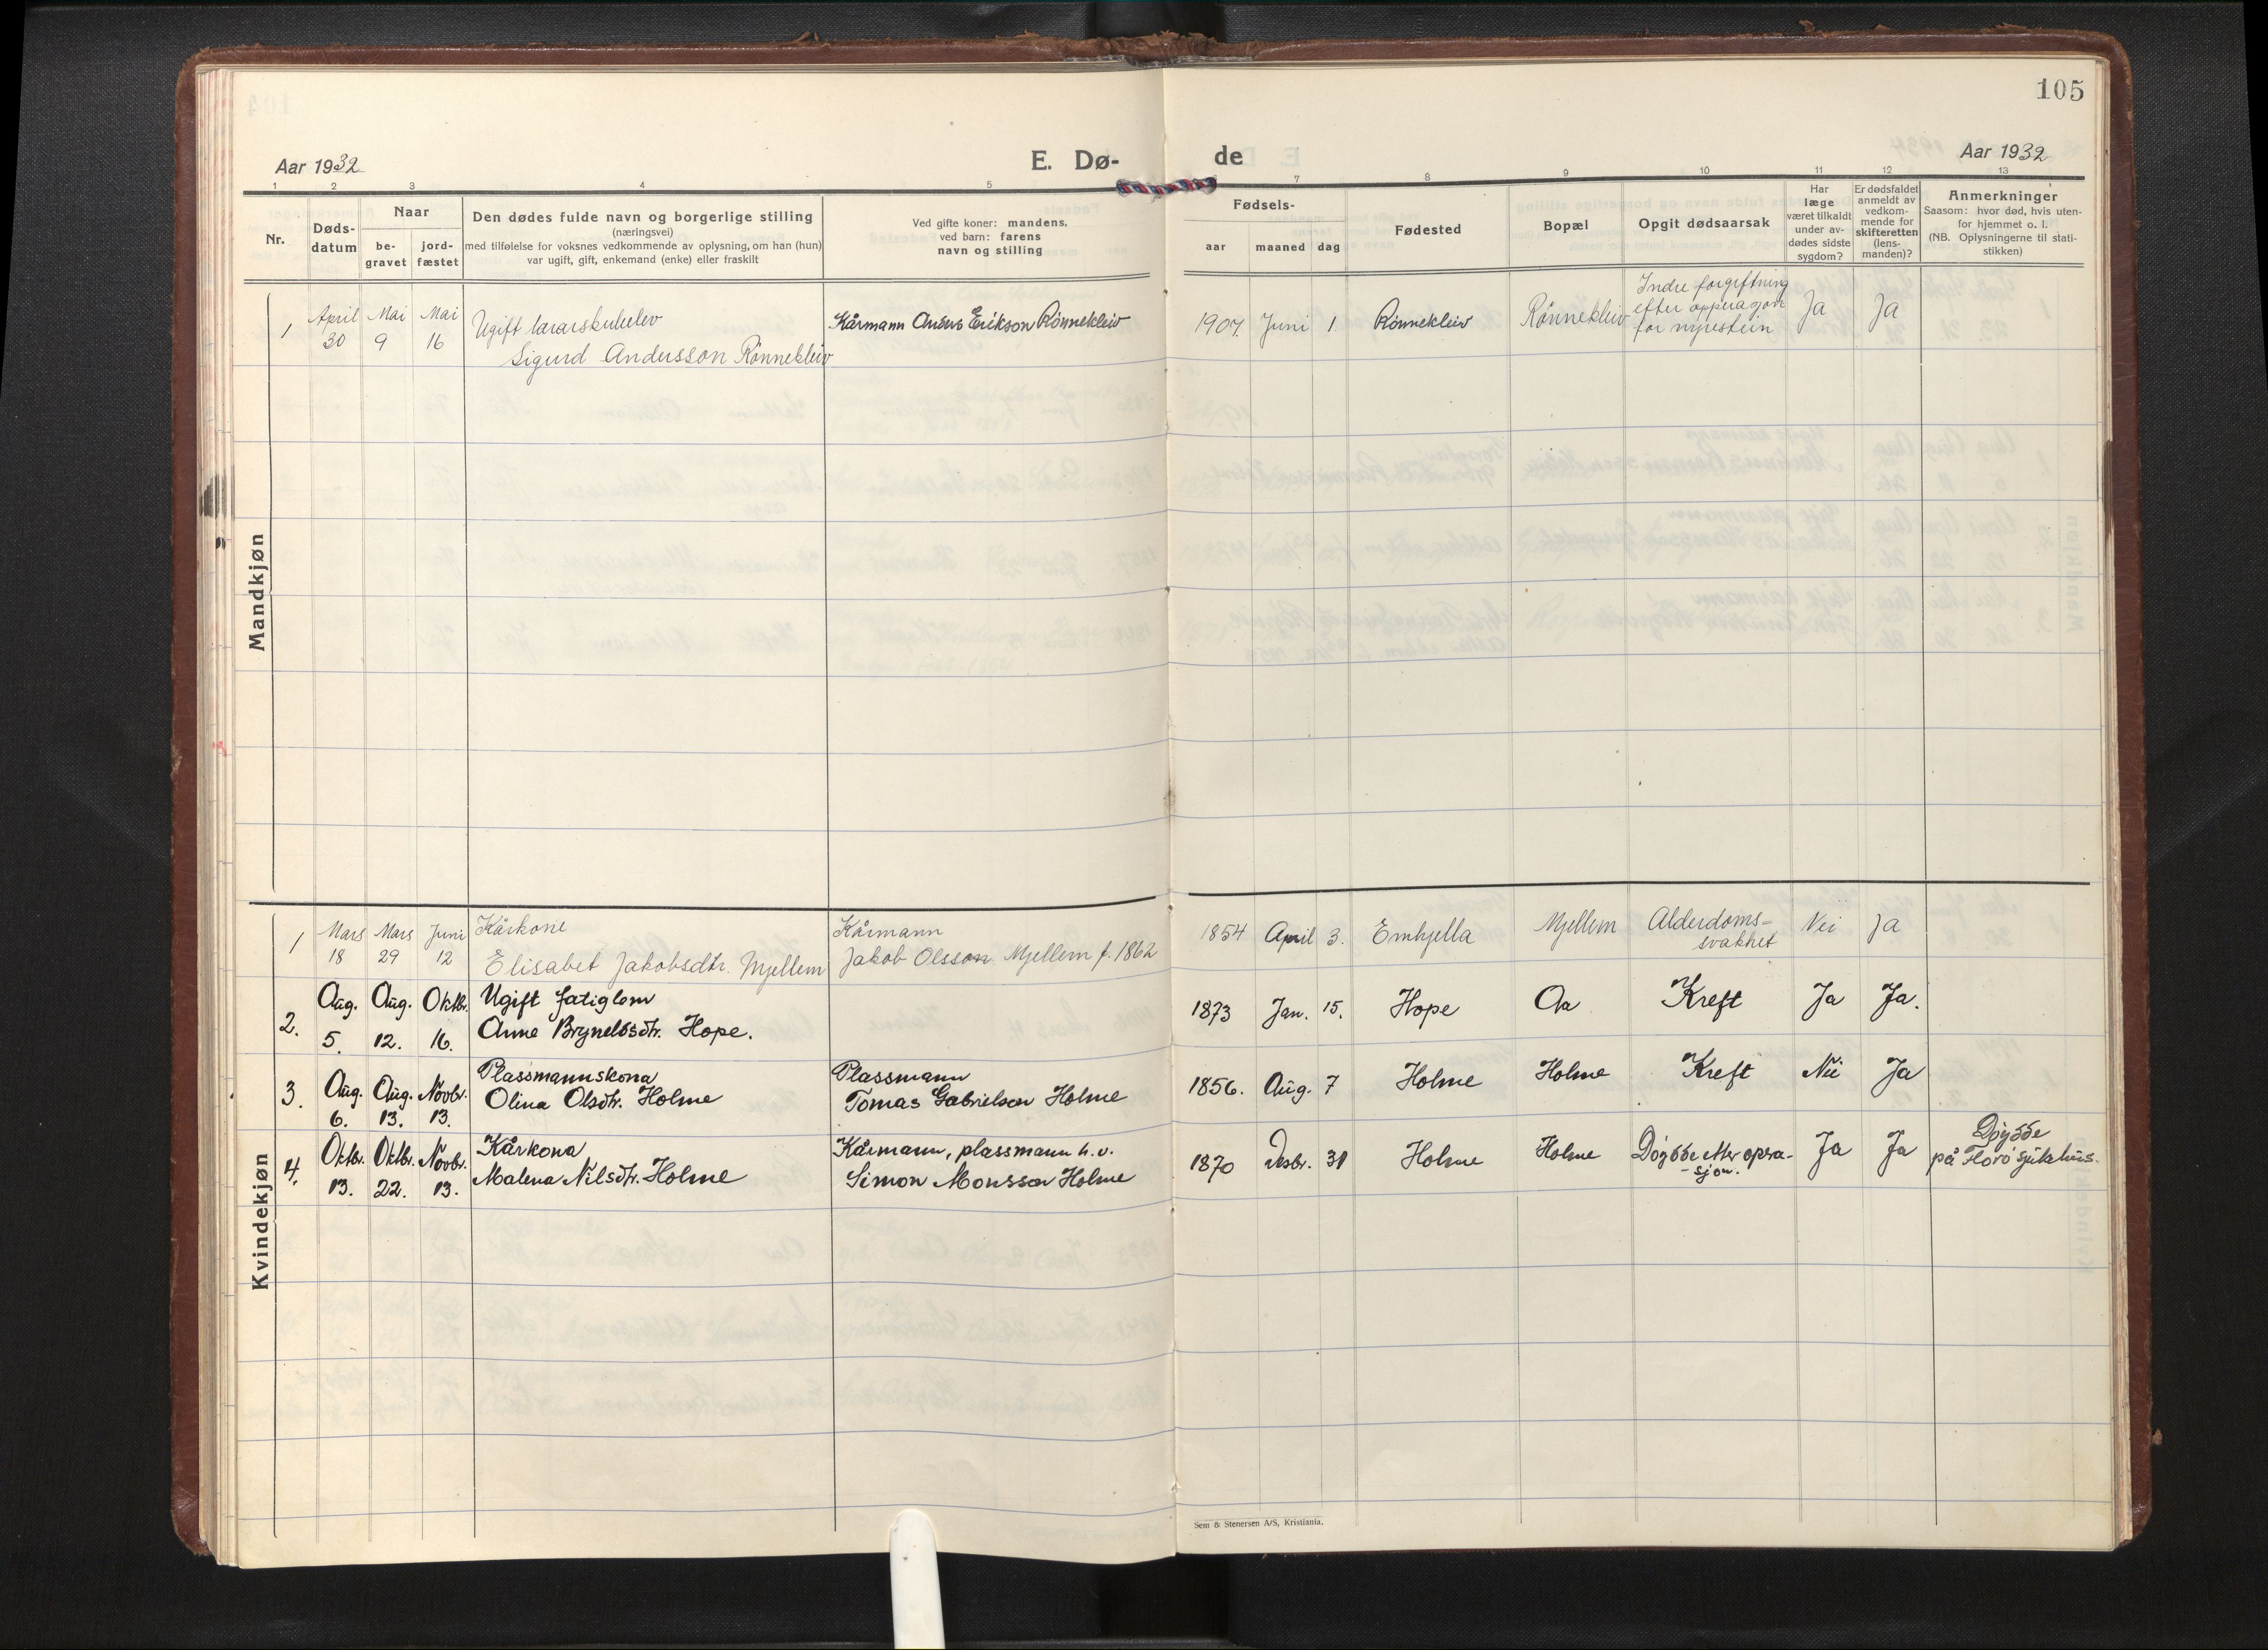 105
Aar 1932
E. Dø-
de
Aar 1932
1 2 3 4 5 7 8 9 10 11 12 13
Nr.
Døds-
datum
Naar
be-
gravet
jord-
fæstet
Den dødes fulde navn og borgerlige stilling
(næringsvei)
med tilføielse for voksnes vedkommende av oplysning, om han (hun)
var ugift, gift, enkemand (enke) eller fraskilt
Ved gifte koner: mandens,
ved barn: farens
navn og stilling
Fødsels-
aar maaned dag
Fødested
Bopæl
Opgit dødsaarsak
Har
læge
været tilkaldt
under av-
dødes sidste
sygdom?
Er dødsfaldet
anmeldt av
vedkom-
mende for
skifteretten
(lens-
manden)?
Anmerkninger
Saasom: hvor død, hvis uten-
for hjemmet o. l.
(NB. Oplysningerne til stati-
stikken)
Mandkjøn
1
April
30
Mai
9
Mai
16
Ugift lærarskuleelev
Sigurd Andersson Rønnekleiv
Kårmann Anders Erikson Rønnekleiv
1907. Juni 1. Rønnekleiv Rønnekleiv
Indre forgiftning
efter opperasjon
for nyrestein
Ja Ja
Kvindekjøn
1
Mars
18
Mars
29
Juni
12
Kårkone
Elisabet Jakobsdtr. Mjellem
Kårmann
Jakob Olsson Mjellem f. 1862
1854 April 3. Emhjella Mjellem
Alderdoms=
svakhet
Nei Ja
2.
Aug.
5.
Aug.
12.
Oktbr.
16.
Ugift fatiglem
Anne Brynelbsdtr. Hope.
1873 Jan. 15. Hope Aa Kreft Ja Ja.
3.
Aug.
6.
Aug.
13.
Novbr.
13.
Plassmannskona
Olina Olsdtr. Holme
Plassmann
Tomas Gabrielson Holme
1856. Aug. 7 Holme Holme Kreft Nei Ja
4.
Oktbr.
13.
Oktbr.
22.
Novbr.
13.
Kårkona
Malena Nilsdtr. Holme
Kårmann, plassmann h. v.
Simon Monsson Holme
1870 Desbr. 31 Holme Holme
Døydde etter opera-
-sjon.
Ja Ja
Døydde
på Florø sjukehus.
Sem & Stenersen A/S, Kristiania.